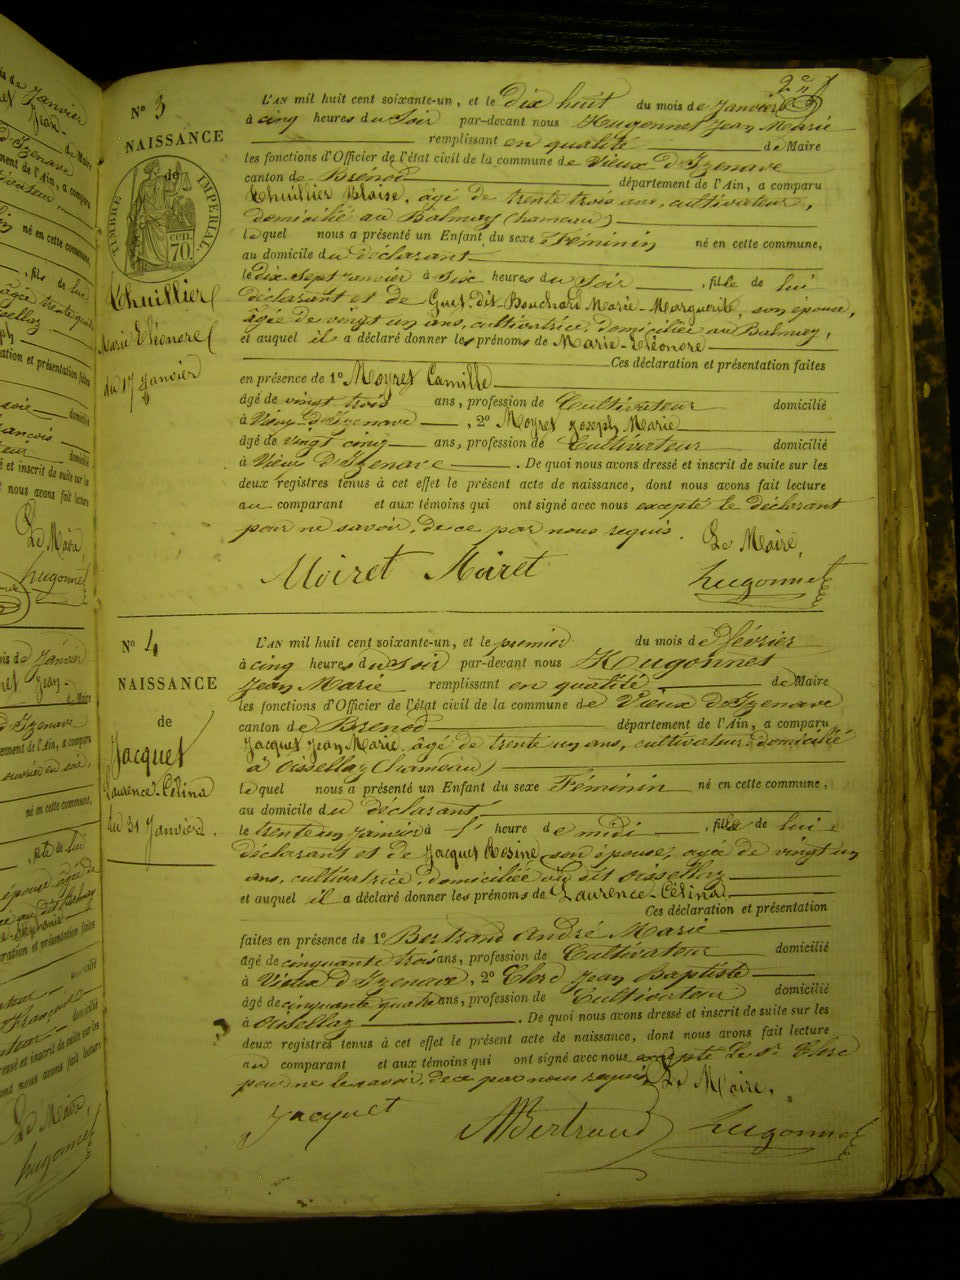 2e f
N° 3
NAISSANCE
de
TIMBRE IMPERIAL.
cen. 70.
Thuillier
Marie Eléonore
du 17 Janvier
L'AN mil huit cent soixante-un, et le dix huit du mois de Janvier
à cinq heures du Soir par-devant nous Hugonnet Jean Marie
remplissant en qualité de Maire
les fonctions d'Officier de l'état civil de la commune de Vieux d'Izenave
canton de Brénod département de l'Ain, a comparu
Thuillier Blaise, âgé de trente trois ans, cultivateur,
domicilié au Balmay (hameau)
lequel nous a présenté un Enfant du sexe Féminin né en cette commune,
au domicile du déclarant
le dix Sept Janvier à Six heures du Soir, fille de lui
déclarant et de Guet-dit-Bouchard Marie-Marguerite, son épouse,
âgée de vingt un ans, cultivatrice, domiciliée au Balmay,
et auquel il a déclaré donner les prénoms de Marie-Eléonore
Ces déclaration et présentation faites
en présence de 1° Moyret Camille
âgé de vingt trois ans, profession de Cultivateur domicilié
à Vieux-d'Izenave, 2° Moyret Joseph Marie
âgé de vingt cinq ans, profession de Cultivateur domicilié
à Vieux D'Izenave. De quoi nous avons dressé et inscrit de suite sur les
deux registres tenus à cet effet le présent acte de naissance, dont nous avons fait lecture
au comparant et aux témoins qui ont signé avec nous excepté le déclarant
pour ne savoir, de ce par nous requis. Le Maire,
Moiret Moiret hugonnet
N° 4
NAISSANCE
de
Jacquet
Laurence-Célina
du 31 Janvier
L'AN mil huit cent soixante-un, et le premier du mois de février
à cinq heures du Soir par-devant nous Hugonnet
Jean Marie remplissant en qualité de Maire
les fonctions d'Officier de l'état civil de la commune de Vieux D'Izenave
canton de Brenod département de l'Ain, a comparu
Jacquet Jean Marie, âgé de trente un ans, cultivateur, domicilié
à Oissellaz (hameau)
lequel nous a présenté un Enfant du sexe Féminin né en cette commune,
au domicile du déclarant
le trente un Janvier à l' heure de midi, fille de lui
déclarant et de Jacquet Rosine, son épouse, agée de vingt un
ans, cultivatrice, domiciliée au dit Oissellaz
et auquel il a déclaré donner les prénoms de Laurence-Célina
Ces déclaration et présentation
faites en présence de 1° Bertrand André Marie
âgé de cinquante trois ans, profession de Cultivateur domicilié
à Vieux d'Izenave, 2° Clerc Jean Baptiste
âgé de cinquante quatre ans, profession de Cultivateur domicilié
à Oissellaz. De quoi nous avons dressé et inscrit de suite sur les
deux registres tenus à cet effet le présent acte de naissance, dont nous avons fait lecture
au comparant et aux témoins qui ont signé avec nous excepté le Sr Clerc
pour ne le savoir, de ce par nous requis Le Maire,
Jacquet ABertrand hugonnet